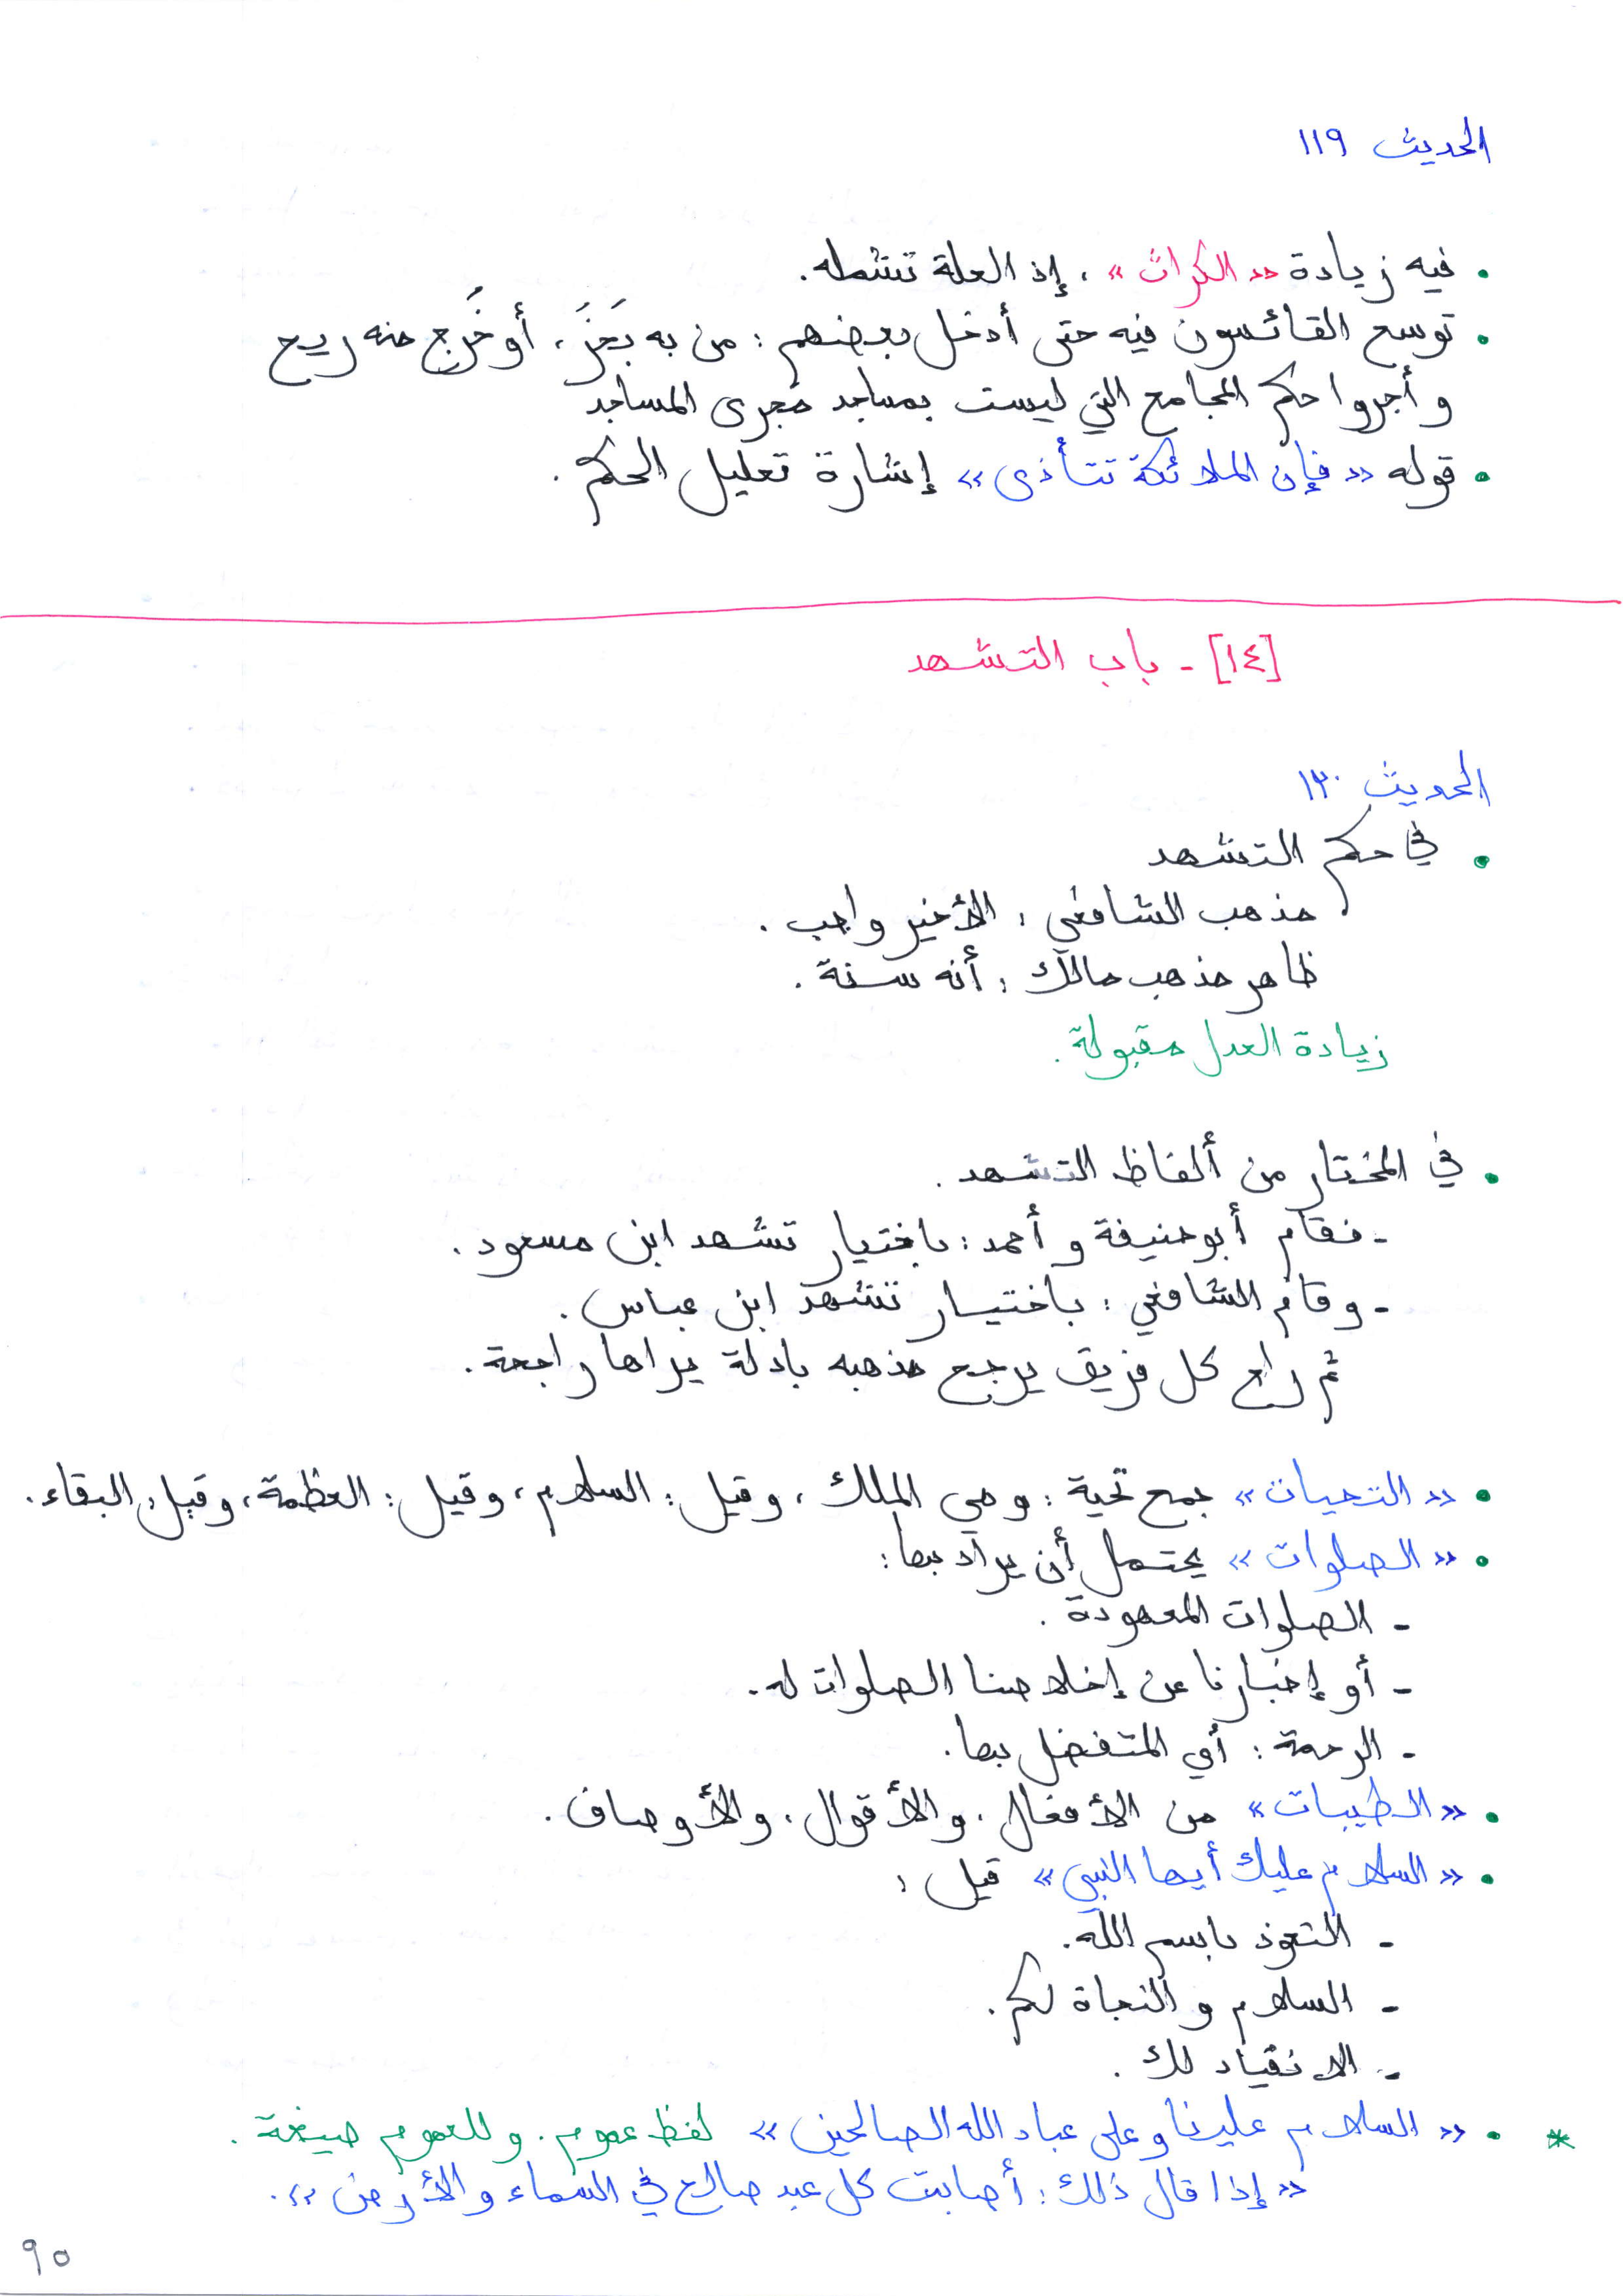 الحديث ١١٩
• فيه زيادة «الكراث»، إذ العلة تشمله.
• توسع القائسون فيه حتى أدخل بعضهم: من به بَخَرٌ، أو خُرج منه ريح
وأجروا حكم المجامع التي ليست بمساجد مَجرى المساجد
• قوله «فإن الملائكة تتأذى» إشارة تعليل الحكم.
[١٤] - باب التشهد
الحديث ١٢٠
• في حكم التشهد
مذهب الشافعي: الأخير واجب.
ظاهر مذهب مالك: أنه سنة.
زيادة العدل مقبولة.
• في المختار من ألفاظ التشهد.
- فقام أبو حنيفة وأحمد: باختيار تشهد ابن مسعود.
- وقام الشافعي: باختيار تشهد ابن عباس.
ثم راح كل فريق يرجح مذهبه بأدلة يراها راجحة.
• «التحيات» جمع تحية: وهي الملك، وقيل: السلام، وقيل: العظمة، وقيل: البقاء.
• «الصلوات» يحتمل أن يراد بها:
- الصلوات المعهودة.
- أو إخبارنا عن إخلاصنا الصلوات له.
- الرحمة: أي المتفضل بها.
• «الطيبات» من الأفعال، والأقوال، والأوصاف.
• «السلام عليك أيها النبي» قيل:
- التعوذ باسم الله.
- السلام والنجاة لكم.
- الانقياد لك.
* • «السلام علينا وعلى عباد الله الصالحين» لفظ عموم. وللعموم صيغة.
«إذا قال ذلك: أصابت كل عبد صالح في السماء والأرض».
٩٥